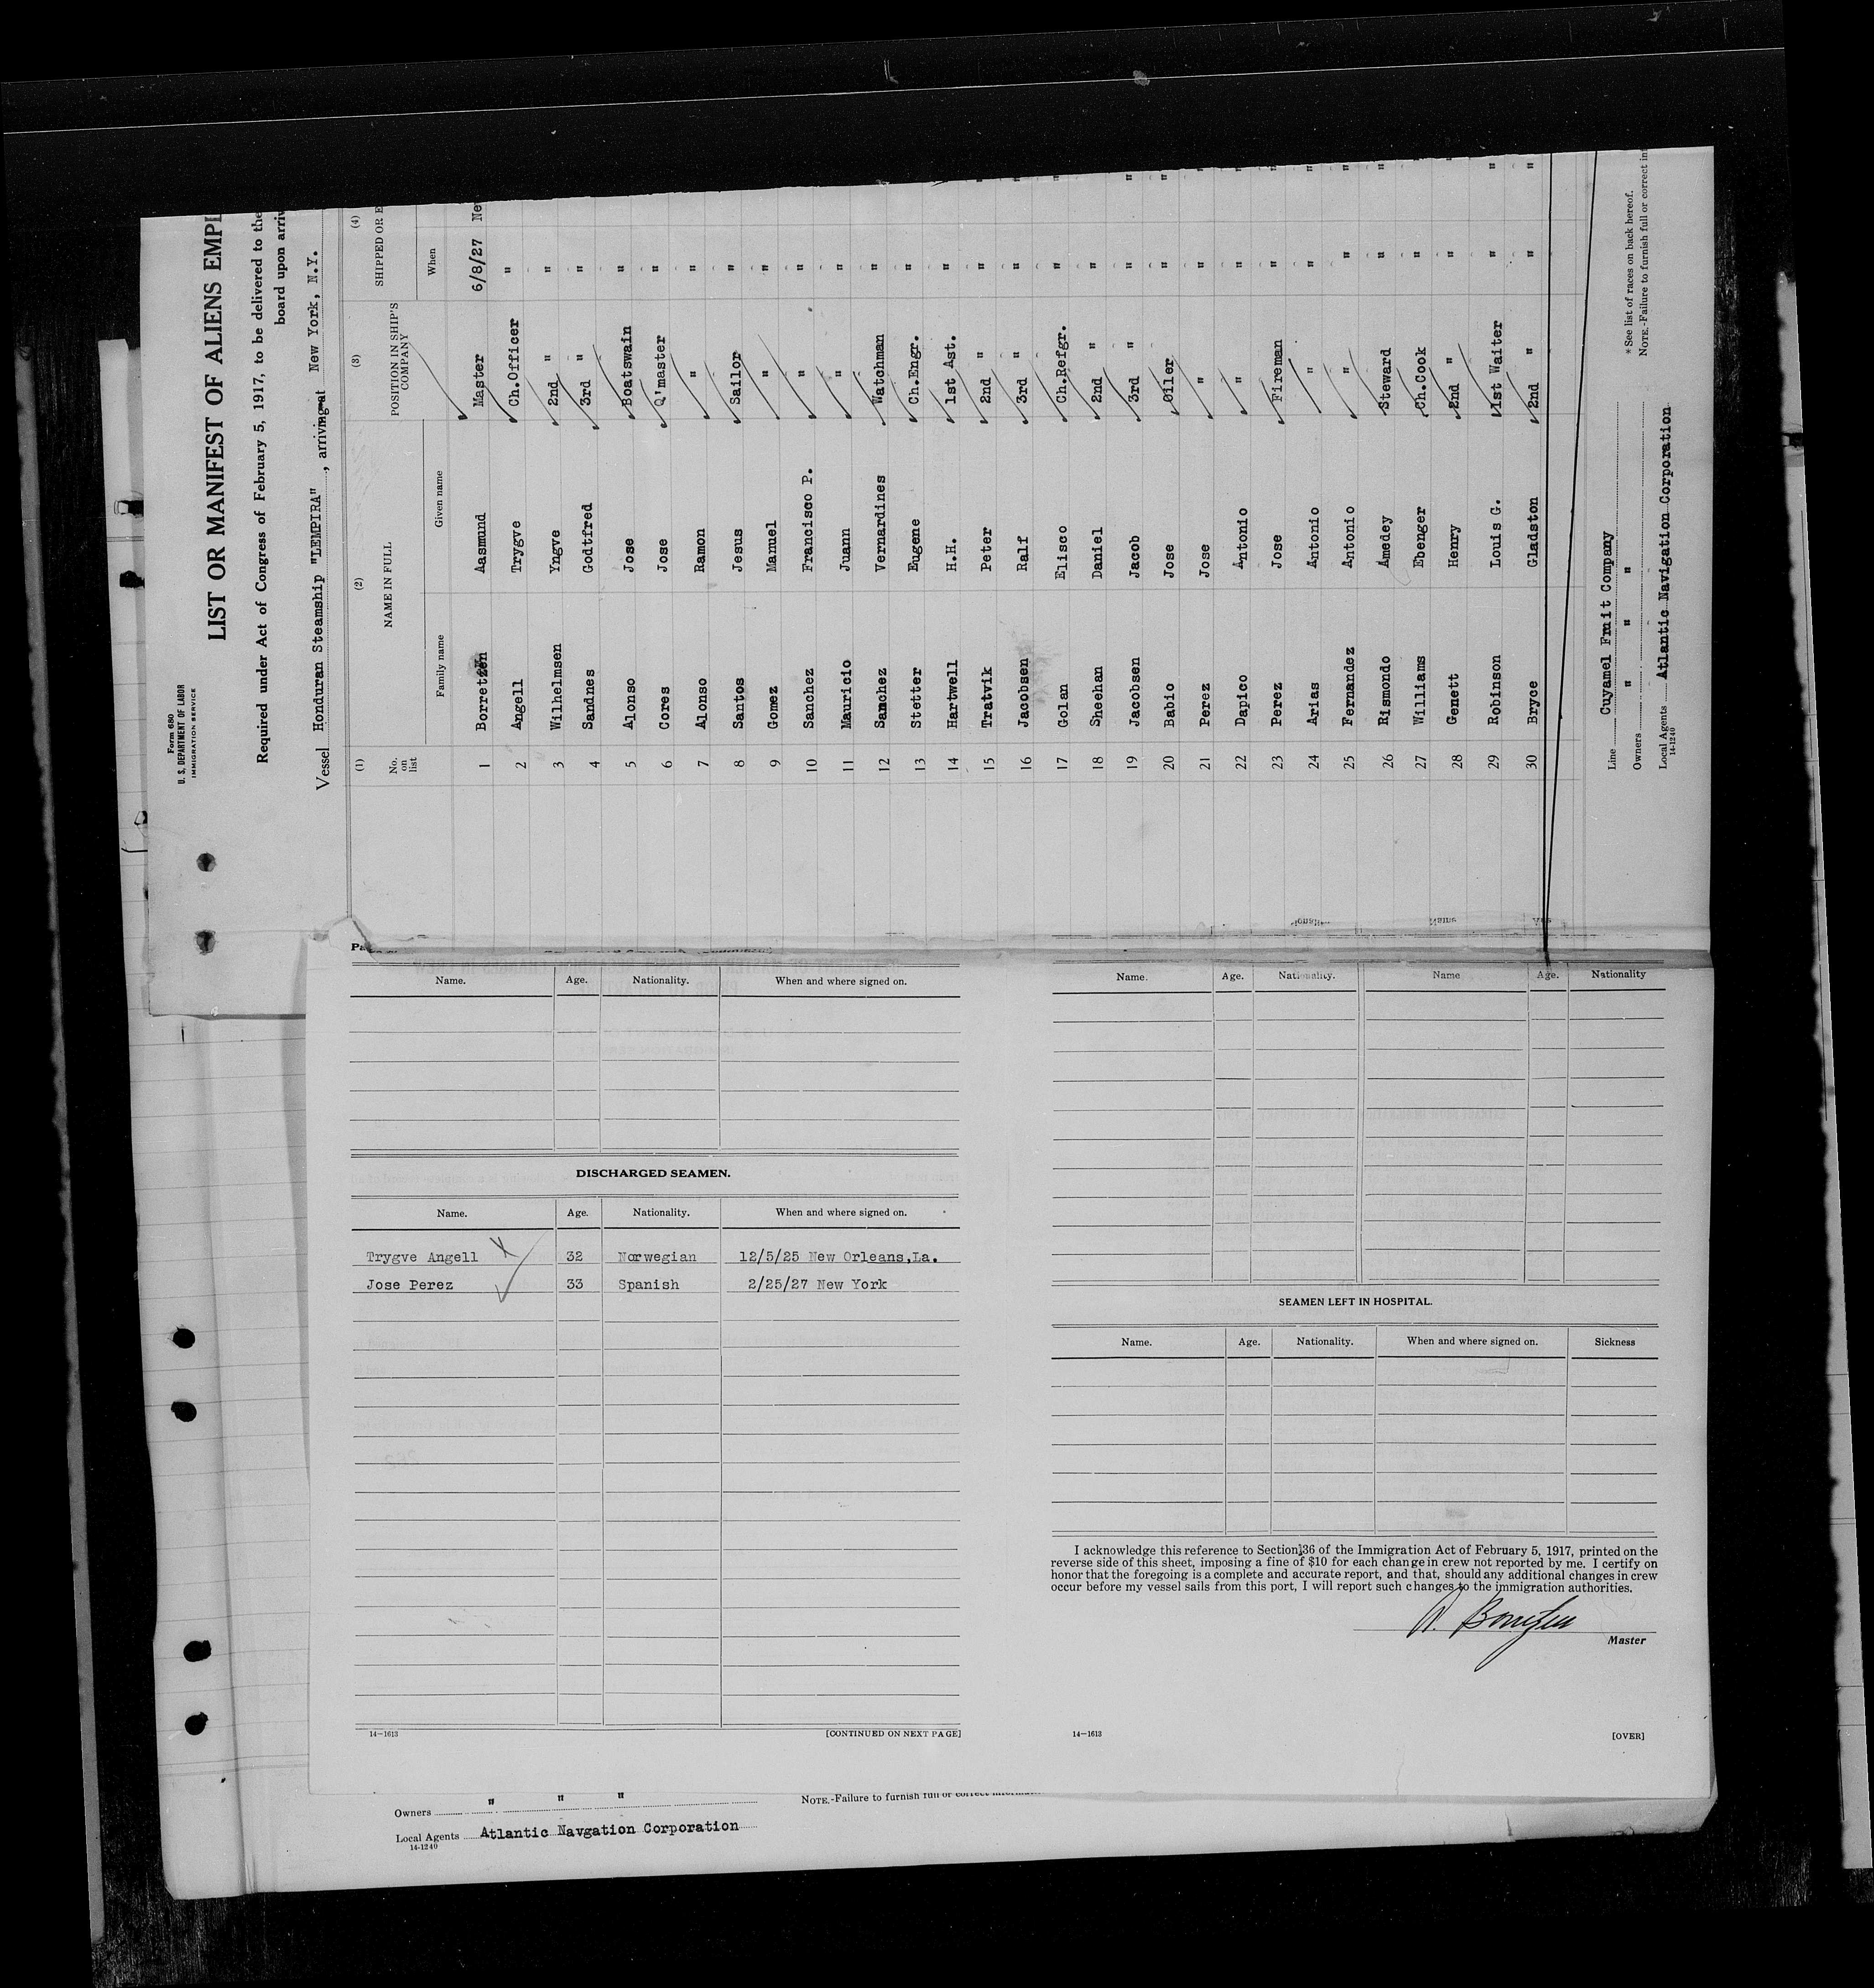 Form 680
U. S. DEPARTMENT OF LABOR
IMMIGRATION SERVICE
LIST OR MANIFEST OF ALIENS EMPL
Required under Act of Congress of February 5, 1917, to be delivered to the
board upon arriv
Vessel Honduran Steamship "LEMPIRA", arriving at New York, N.Y.
(1) (2) (3) (4)
No. on list NAME IN FULL POSITION IN SHIP'S COMPANY SHIPPED OR E
Family name Given name When
1 Borretzen Aasmund Master 6/8/27 Ne
2 Angell Trygve Ch.Officer "
3 Wilhelmsen Yngve 2nd " "
4 Sandnes Godtfred 3rd " "
5 Alonso Jose Boatswain "
6 Cores Jose Q'master "
7 Alonso Ramon " "
8 Santos Jesus Sailor "
9 Gomez Manuel " "
10 Sanchez Francisco P. " "
11 Mauricio Juann " "
12 Sanchez Vernardines Watchman "
13 Stetter Eugene Ch.Engr. "
14 Hartwell H.H. 1st Ast. "
15 Tratvik Peter 2nd " " "
16 Jacobsen Ralf 3rd " " "
17 Golan Elisco Ch.Refgr. " "
18 Sheehan Daniel 2nd " "
19 Jacobsen Jacob 3rd " " "
20 Babio Jose Oiler " "
21 Perez Jose " " "
22 Dapico Antonio " " "
23 Perez Jose Fireman " "
24 Arias Antonio " " "
25 Fernandez Antonio " " "
26 Rismondo Amedey Steward " "
27 Williams Ebenger Ch.Cook " "
28 Genett Henry 2nd " " "
29 Robinson Louis G. 1st Waiter " "
30 Bryce Gladston 2nd " " "
Line Cuyamel Fruit Company
* See list of races on back hereof.
Owners " " "
NOTE.-Failure to furnish full or correct in
Local Agents Atlantic Navigation Corporation
14-1240
Name. Age. Nationality. When and where signed on.
DISCHARGED SEAMEN.
Name. Age. Nationality. When and where signed on.
Trygve Angell 32 Norwegian 12/5/25 New Orleans,La.
Jose Perez 33 Spanish 2/25/27 New York
14-1613 [CONTINUED ON NEXT PAGE]
Name. Age. Nationality. Name Age. Nationality
SEAMEN LEFT IN HOSPITAL.
Name. Age. Nationality. When and where signed on. Sickness
I acknowledge this reference to Section 36 of the Immigration Act of February 5, 1917, printed on the
reverse side of this sheet, imposing a fine of $10 for each change in crew not reported by me. I certify on
honor that the foregoing is a complete and accurate report, and that, should any additional changes in crew
occur before my vessel sails from this port, I will report such changes to the immigration authorities.
A. Borretzen
Master
14-1613 [OVER]
Owners " " "
NOTE.-Failure to furnish full or correct
Local Agents Atlantic Navgation Corporation
14-1240